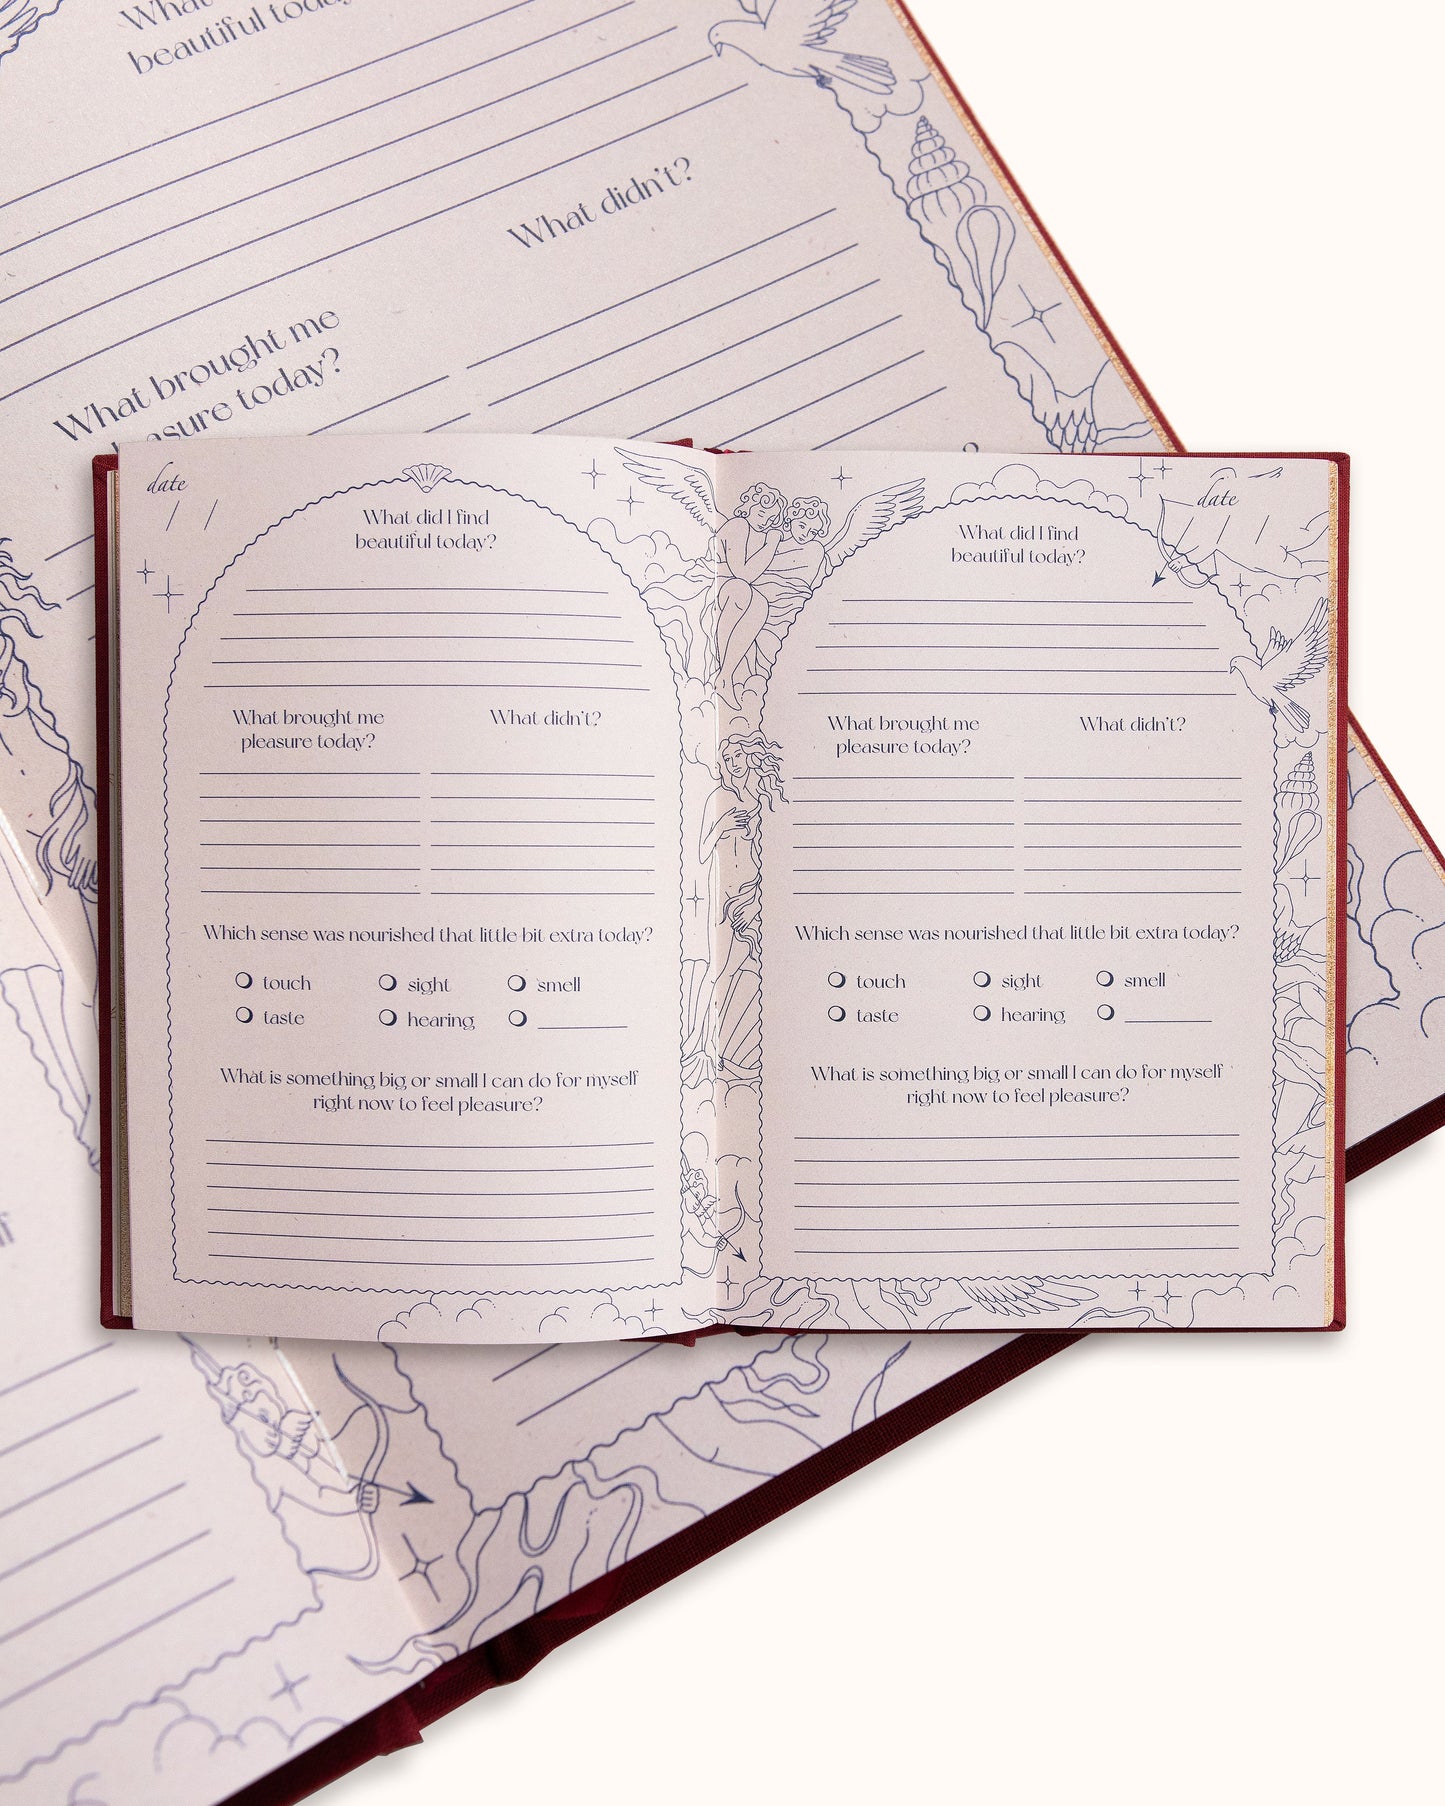 What
beautiful today
What didn't?
What brought me
pleasure today?
date
/ /
What did I find
beautiful today?
What brought me
pleasure today?
What didn't?
Which sense was nourished that little bit extra today?
touch sight smell
taste hearing
What is something big or small I can do for myself
right now to feel pleasure?
date
/ /
What did I find
beautiful today?
What brought me
pleasure today?
What didn't?
Which sense was nourished that little bit extra today?
touch sight smell
taste hearing
What is something big or small I can do for myself
right now to feel pleasure?